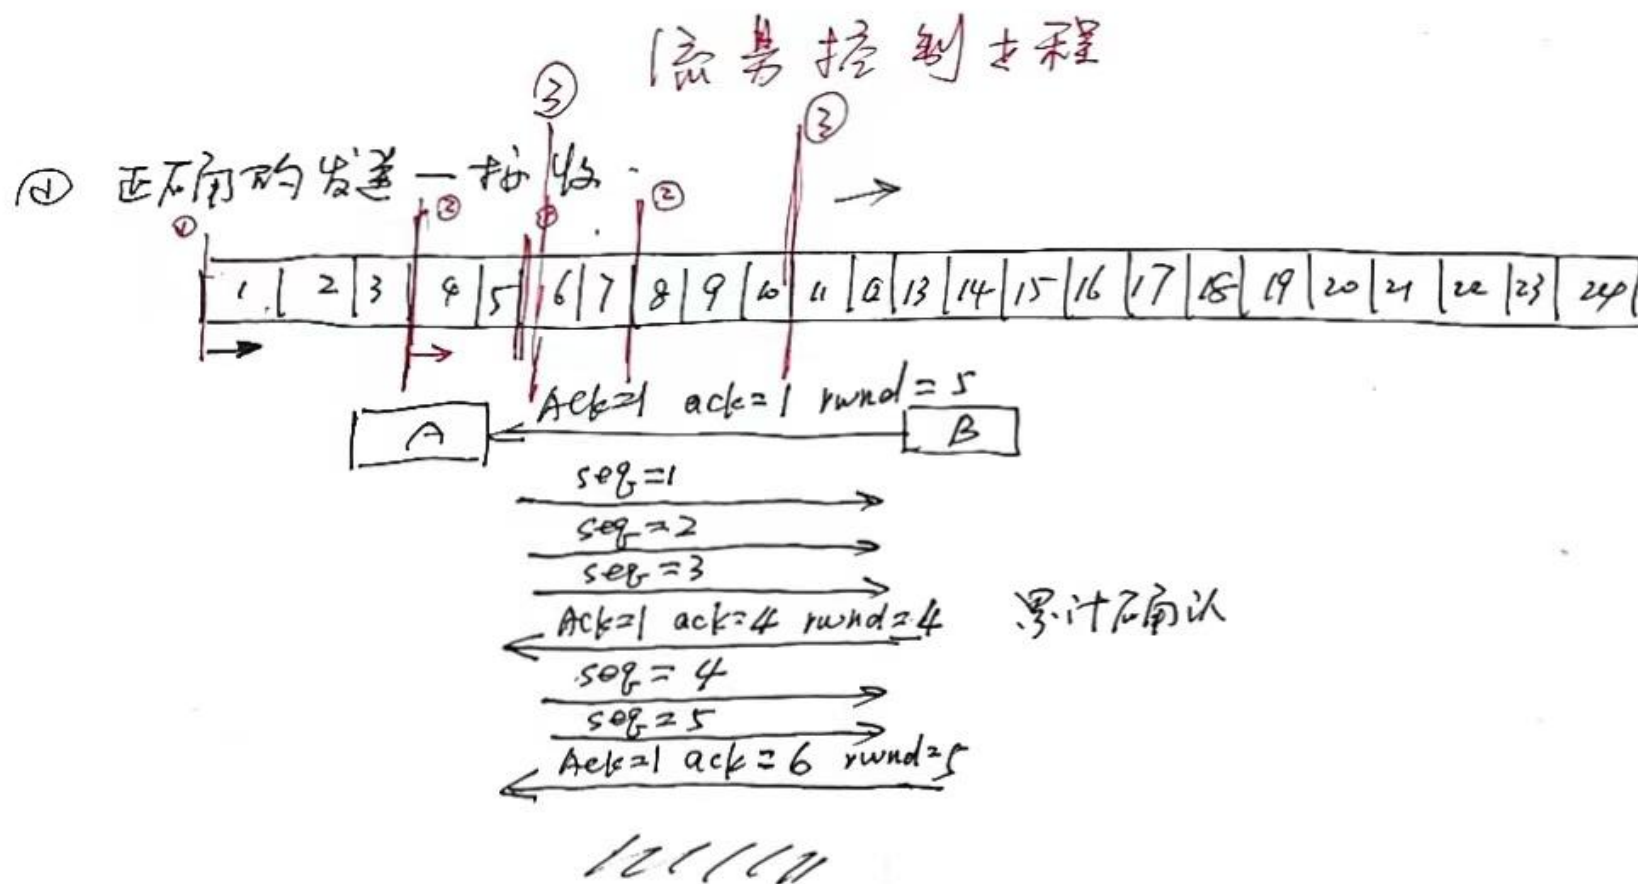 流量控制过程
③
③
① 正确的发送—接收
① ② ① ②
1 2 3 4 5 6 7 8 9 10 11 12 13 14 15 16 17 18 19 20 21 22 23 24
Ack=1 ack=1 rwnd=5
A B
seq=1
seq=2
seq=3
Ack=1 ack=4 rwnd=4 累计确认
seq=4
seq=5
Ack=1 ack=6 rwnd=5